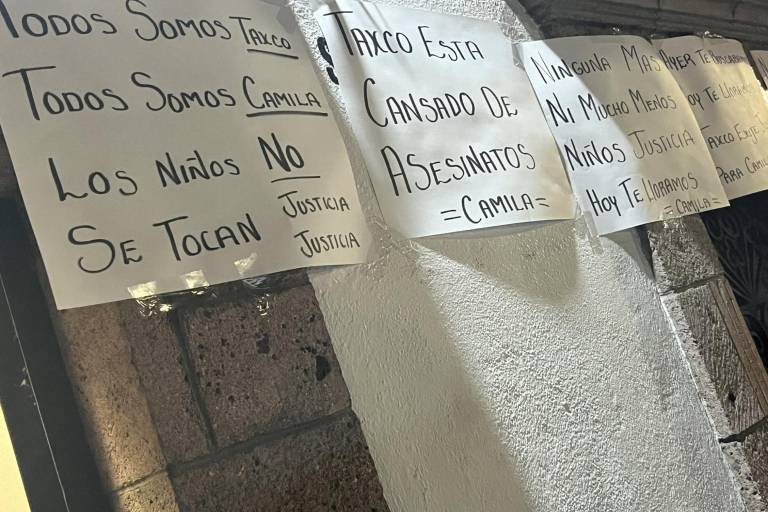 Todos Somos Taxco
Todos Somos Camila
Los Niños No
Se Tocan
Justicia
Justicia
Taxco Esta
Cansado De
Asesinatos
=Camila=
Ninguna Mas
Ni Mucho Menos
Niños Justicia
Hoy Te Lloramos
=Camila=
Ayer Te
Hoy Te
Taxco Exije
Para